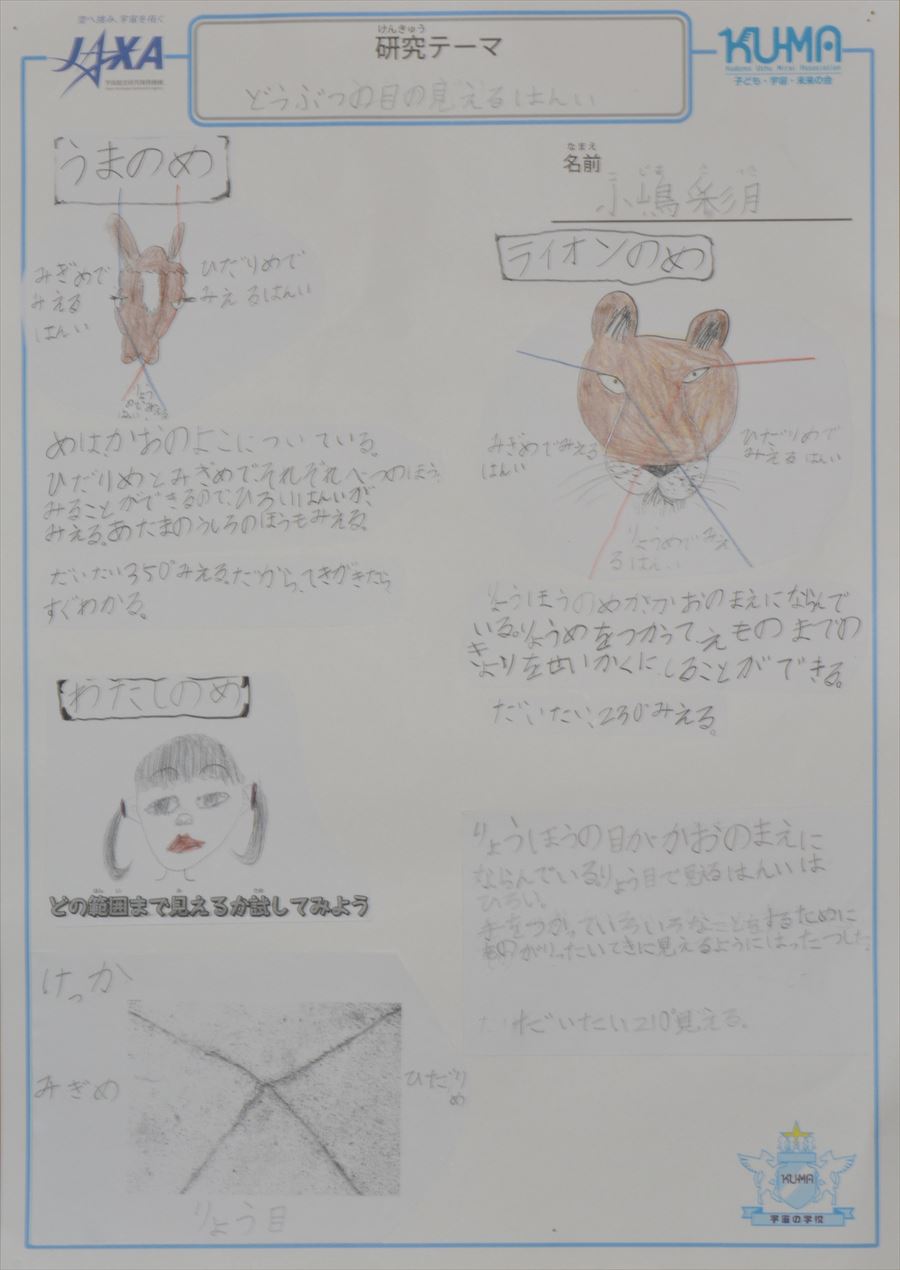 空へ挑み、宇宙を拓く
JAXA
宇宙航空研究開発機構
けんきゅう
研究テーマ
どうぶつの目の見えるはんい
KU-MA
Kodomo Uchu Mirai Association
子ども・宇宙・未来の会
なまえ
名前
小嶋
うまのめ
みぎめで
みえる
はんい
ひだりめで
みえるはんい
りょう
めでみえる
はんい
めは、かおのよこについている。
ひだりめとみぎめでそれぞれべつのほう
みることができるので、ひろいはんいが、
みえる。あたまのうしろのほうもみえる。
だいたい350°みえる。だから、てきがきたら
すぐわかる。
ライオンのめ
みぎめでみえる
はんい
ひだりめで
みえるはんい
りょうめでみえ
るはんい
りょうほうのめが、かおのまえにならんで
いる。りょうめをつかって、えものまでの
きょりをせいかくにしることができる。
だいたい、230°みえる。
わたしのめ
はんい み ため
どの範囲まで見えるか試してみよう
りょうほうの目がかおのまえに
ならんでいる。りょう目で見るはんいは
ひろい。
手をつかっていろいろなことをするために
ものがりったいてきに見えるようにはったつした。
だいたい210°見える。
けっか
みぎめ
ひだり
め
りょう目
KU-MA
宇宙の学校